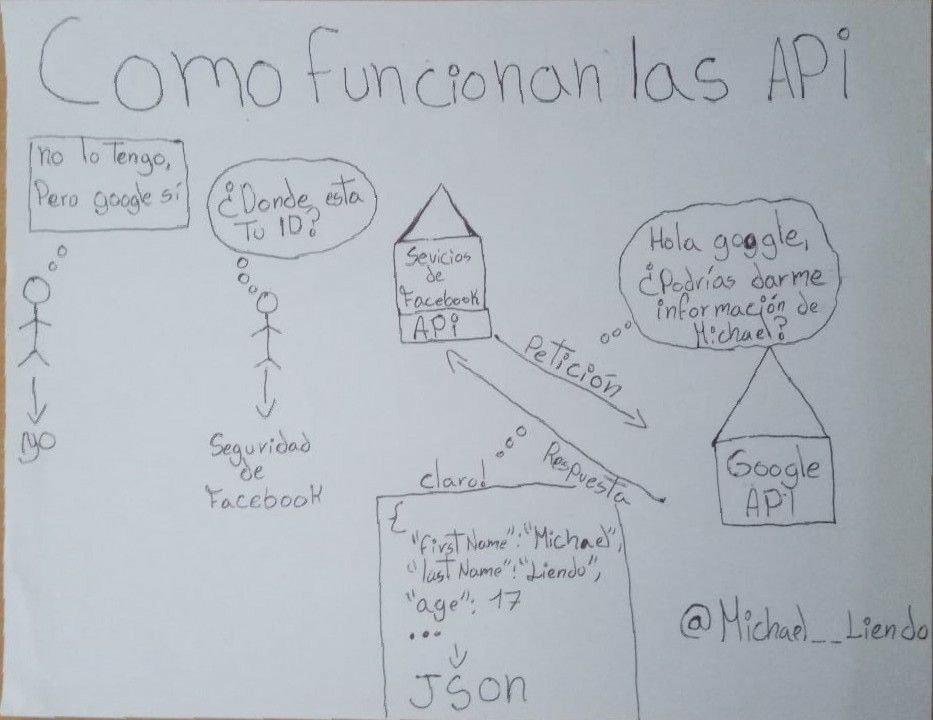 Como funcionan las APi
no lo Tengo,
Pero google sí
¿Donde esta
Tu ID?
yo
Seguridad
de
Facebook
Sevicios
de
Facebook
APi
Petición
Respuesta
Hola google,
¿Podrías darme
información de
Michael?
Google
API
claro!
{
"firstName":"Michael",
"lastName":"Liendo",
"age": 17
...
JSon
@Michael__Liendo